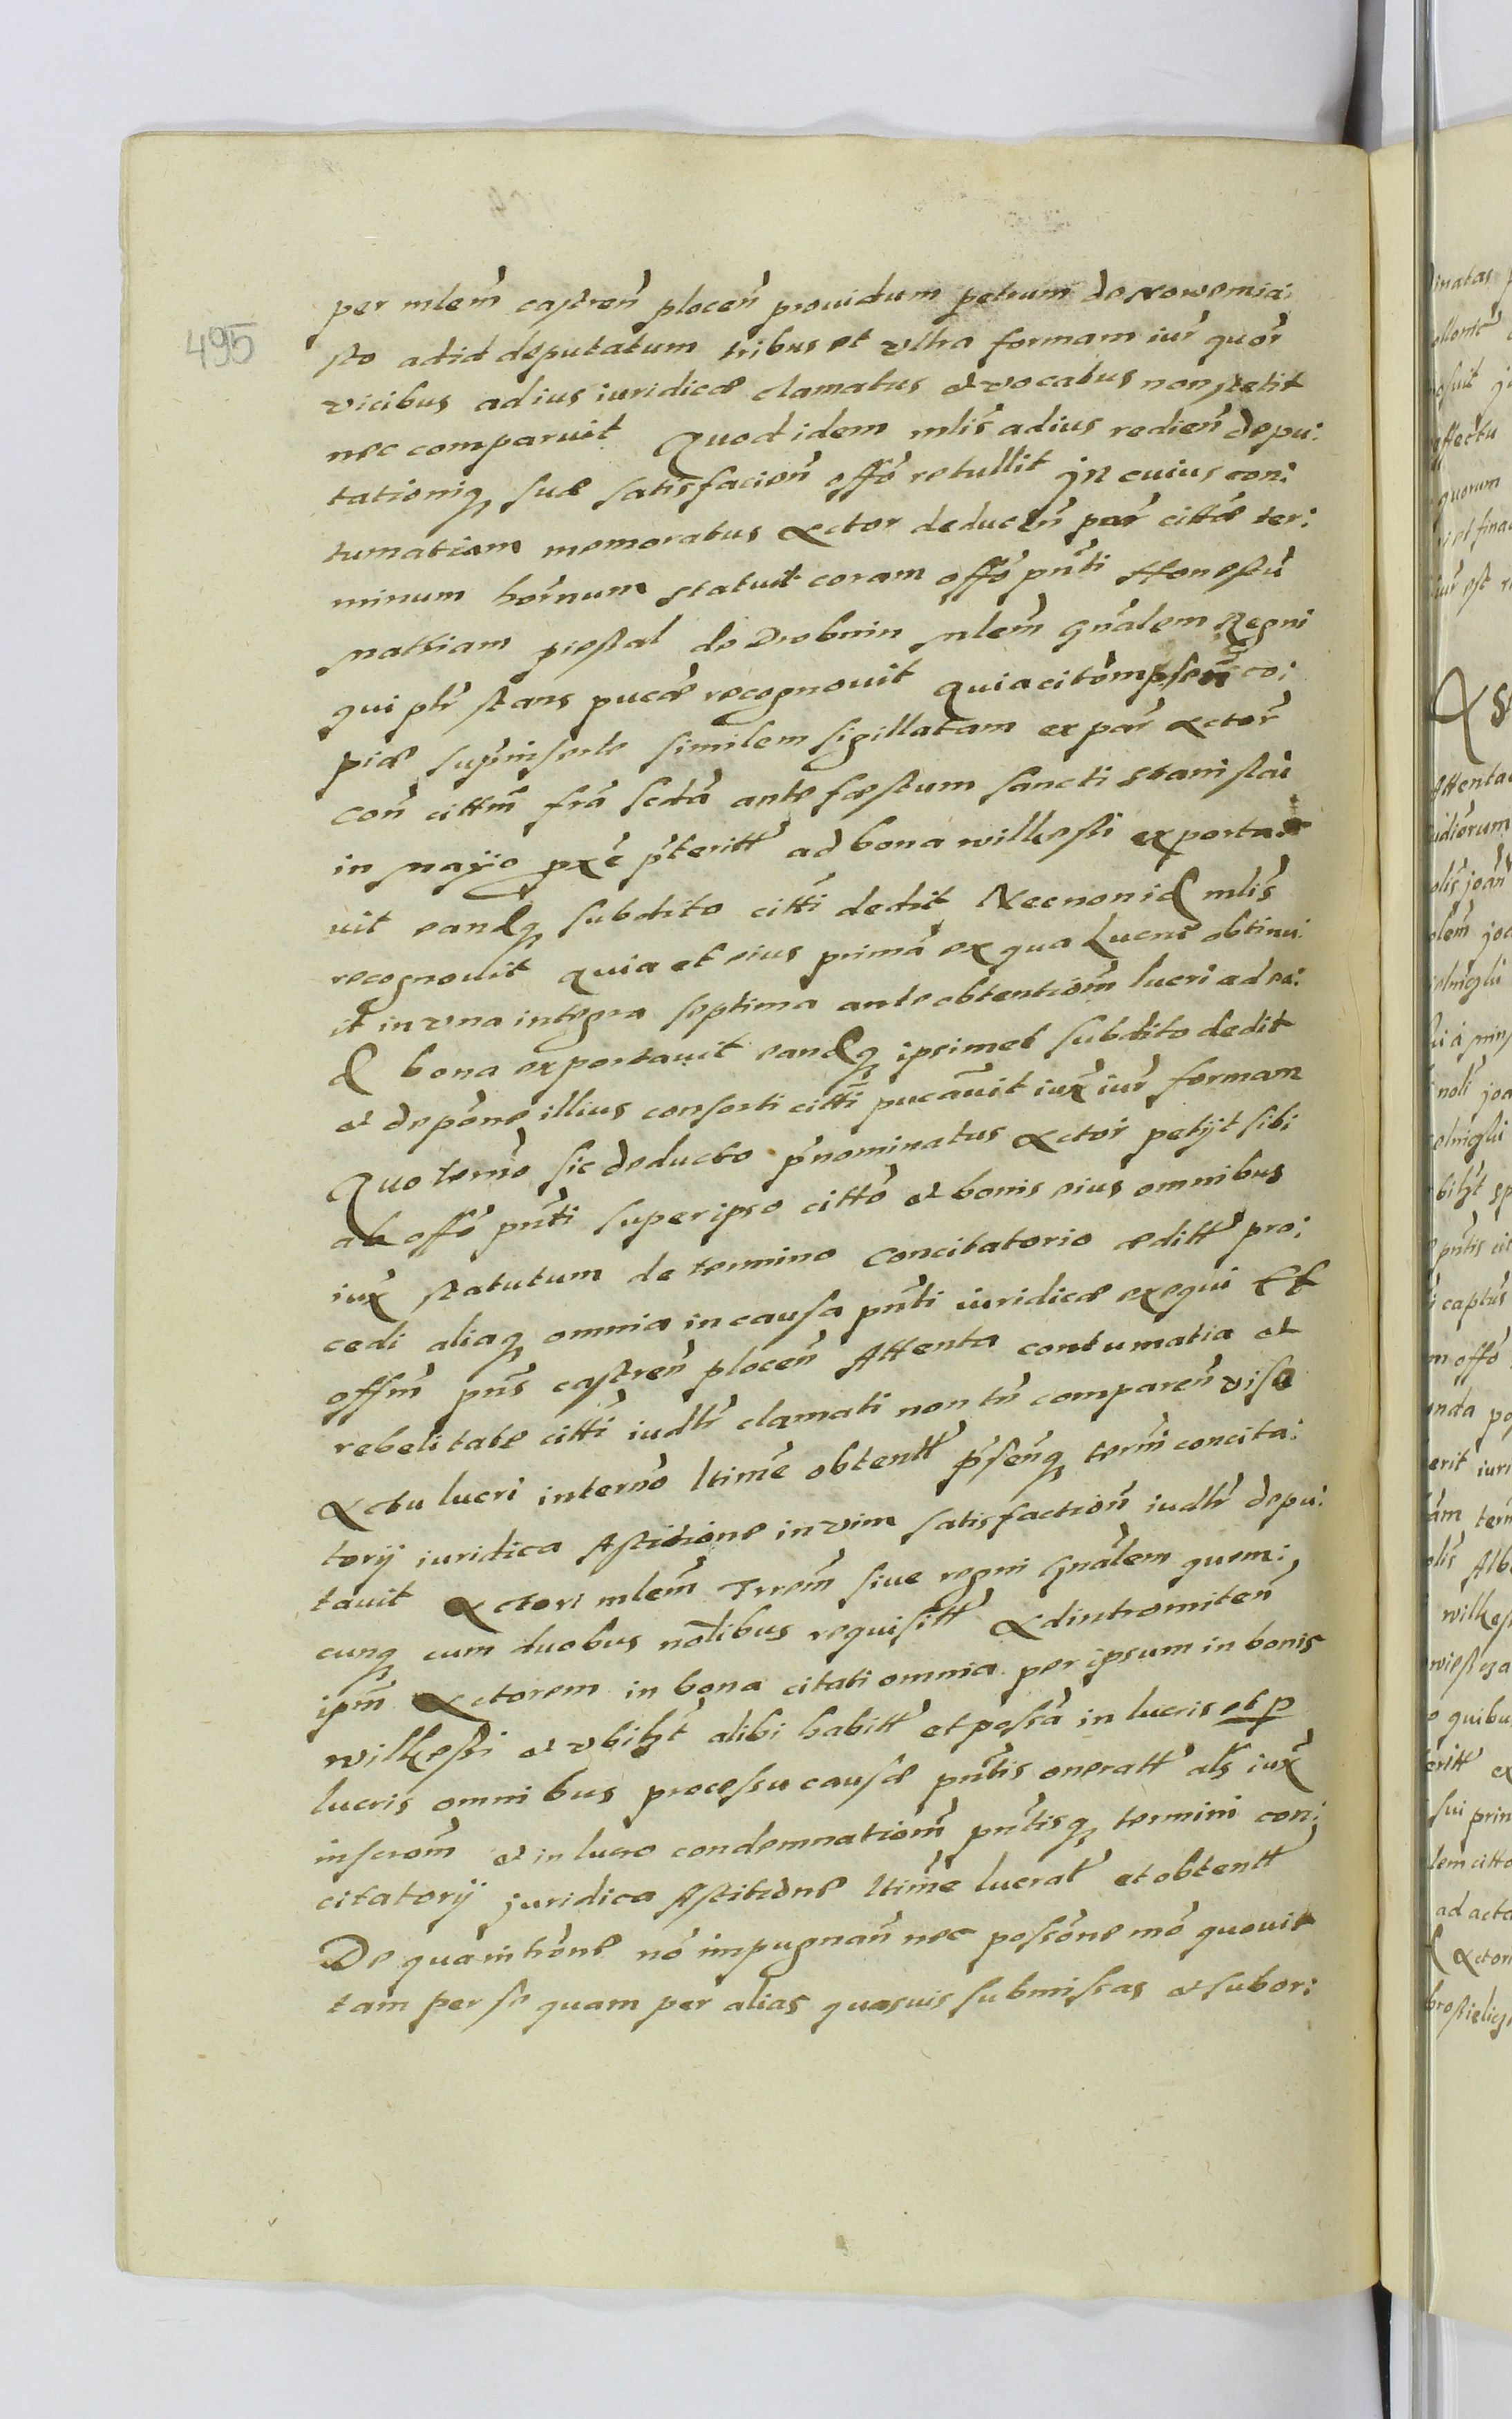 per mlem̃ castreñploceñ prouidum petrum de Nowemia:
sto ad id deputatum tribus et vltra formam iur̃ quor̃
vicibus ad ius iuridicæ clamatus et vocatus non stetit
nec comparuit Quod idem mlis̃ ad ius rediens̃ depu:
495
tationiq suæ satisfacieñ offõ retullit Jn cuius con:
tumatiam memoratus Actor deduceñ par̃ cittæ ter:
minum hor̃num statuit coram offõ pñti Honestũ
Mathiam piestal de Drobnin Mlem̃ gñalem Regni
qui ptr̃ stans pucæ recognouit Quia citõm pseñ co:
piæ supĩnserte similem sigillatam ex par̃ Actor̃
Coñ cittm̃ frã scdã ante festum Sancti Stanislai
in Mayio pxẽ p̃teritt̃ ad bona wilkesti exporta
uit eandq subdito citti dedit Necnon id mlis̃
recognouit Quia et eius primã ex qua Lucrũ obtinu:
it in vna integra septima ante obtentiom̃ lucri ad ea:
d bona exportauit eandq ipsimet subdito dedit
et depõne illius consorti citti pucãuit iux̃ iur̃ formam
Quo termõ sic deducto p̃nominatus Actor petijt sibi
ab offõ pñti super ipso cittõ et bonis eius omnibus
iux̃ statutum de termino concitatorio æditt̃ pro:
cedi aliaq omnia in causa pñti iuridicæ exequi Et
offm̃ pñs castreñ ploceñ Attenta contumatia et
rebelitate citti iudtr̃ clamati non tñ compareñ viso
Actu lucri in termõ ltime obtentt̃ p̃senq term̃i concita:
torij iuridica Astitione in vim satisfactioñ iudtr̃ depu:
tauit Actori mlem̃ Trrem̃ siue regni Gñalem quem:
cunq cum duobus nõlibus requisitt̃ Adintromiteñ
ipm̃ Actorem in bona citati omnia per ipsum in bonis
wilkesti et vbilzt̃ alibi habitt̃ et possã in lucris et p
lucris omnibus processu causæ pñtis oneratt̃ als̃ iux̃
inscrom̃ et in lucro condemnatiom̃ pñtisq termini con:
citatorij juridica Astitione ltime lucrat̃ et obtentt̃
De qua intrõne nõ impugnañ nec possõne mõ quouit
tam per se quam per alias quasuis submissas et subor: